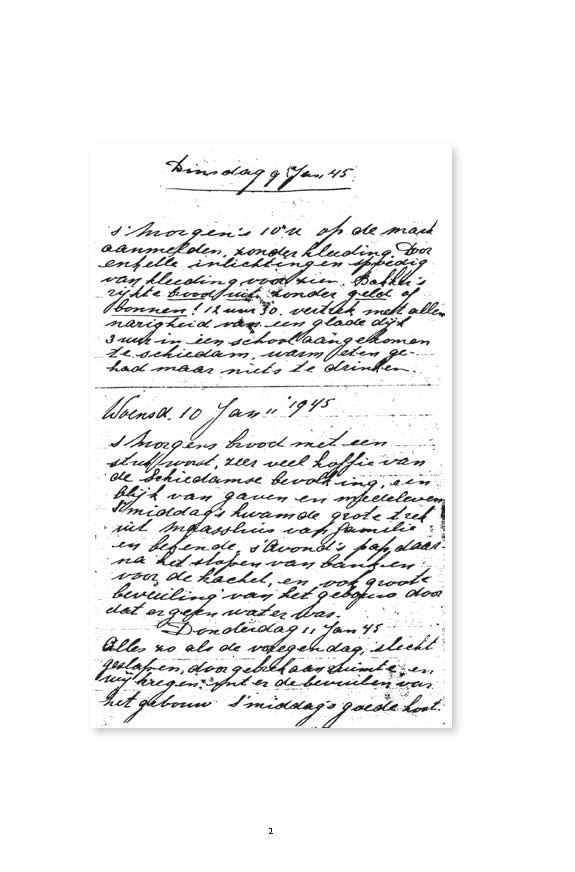 Dinsdag 9 Jan. 45
s'Morgen's 10 u op de mark
aanmelden, zonder kleding. Door
enkelle inlichtingen spoedig
van kleeding voorzien. Bakker's
rijkte brood uit, zonder geld of
bonnen! 12 uur 30. vertrek, met allen
narigheid van een gladde dijk
3 uur in een school aangekomen
te schiedam. warm eten ge-
had maar niets te drinken.
Woensd. 10 Jan " 1945
s Morgens brood met een
stuk worst, zeer veel koffie van
de Schiedamse bevolking, een
blijk van gaven en medeleven
S'middag's kwam de grote trek
uit Maassluis van familie
en bekende, s'avond's pap, daar-
na het slapen van banken
voor de kachel, en ook groote
bevuiling van het gebouw door
dat er geen water was.
Donderdag 11 Jan 45
Alles zo als de voregen dag, slecht
geslapen, door gebrek aan ruimte, en
wij kregen er de bevuilen van
het gebouw s'middag's goede kost.
2